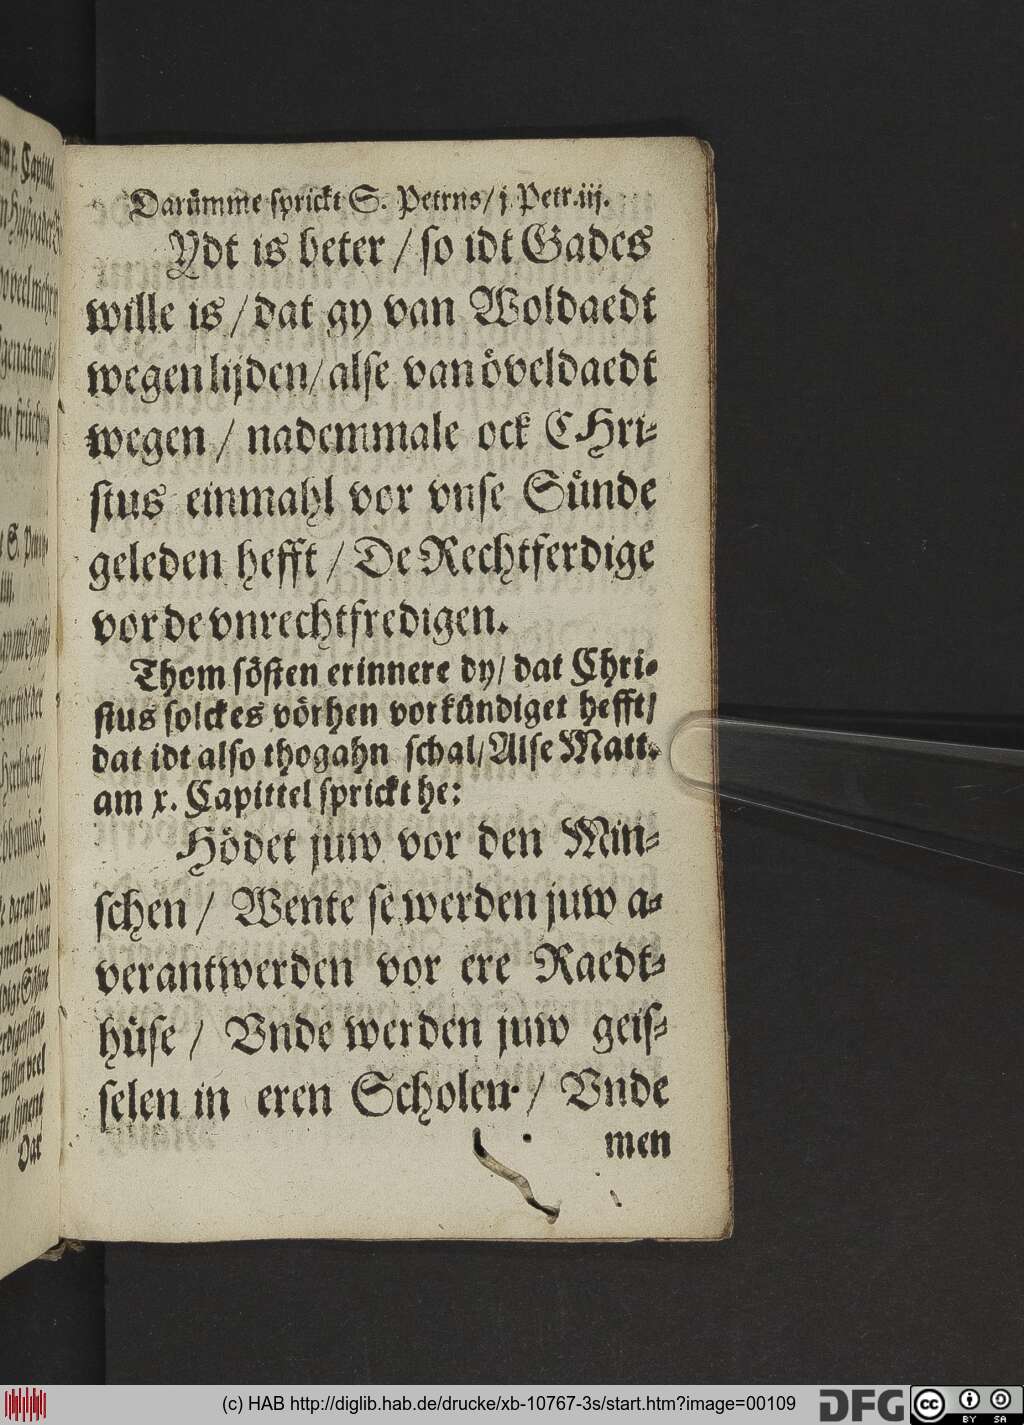 Darümme sprickt S. Petrns/ j Petr.iij.
Ydt is beter / so idt Gades
wille is / dat gy van Woldaedt
wegen lijden/ alse van öveldaedt
wegen / nademmale ock CHri-
stus einmahl vor vnse Sünde
geleden hefft / De Rechtferdige
vor de vnrechtfredigen.
Thom sösten erinnere dy/ dat Chri-
stus solckes vörhen vorkündiget hefft/
dat idt also thogahn schal/ Alse Matt.
am x. Capittel sprickt he:
Hödet juw vor den Min-
schen / Wente se werden juw a-
verantwerden vor ere Raedt-
hüse / Vnde werden juw geis-
selen in eren Scholen / Vnde
men
(c) HAB http://diglib.hab.de/drucke/xb-10767-3s/start.htm?image=00109
DFG
cc
BY SA